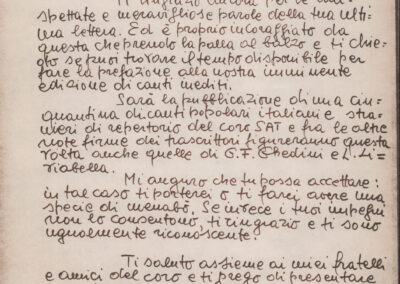 Ti ringrazio ancora per le
spettate e meravigliose parole della tua ulti=
ma lettera. Ed è proprio incoraggiato da
questa che prendo la palla al balzo e ti chie=
go se puoi trovare il tempo disponibile per
fare la prefazione alla nostra imminente
edizione di canti inediti.
Sarà la pubblicazione di una cin=
quantina di canti popolari italiani e stra=
nieri di repertorio del coro SAT e fra le altre
note firme dei trascrittori figureranno questa
volta anche quelle di G.F. Ghedini e L. Li=
viabella.
Mi auguro che tu possa accettare:
in tal caso ti porterei o ti farei avere una
specie di menabò. Se invece i tuoi impegni
non lo consentono, ti ringrazio e ti sono
ugualmente riconoscente.
Ti saluto assieme ai miei fratelli
e amici del coro e ti prego di presentare